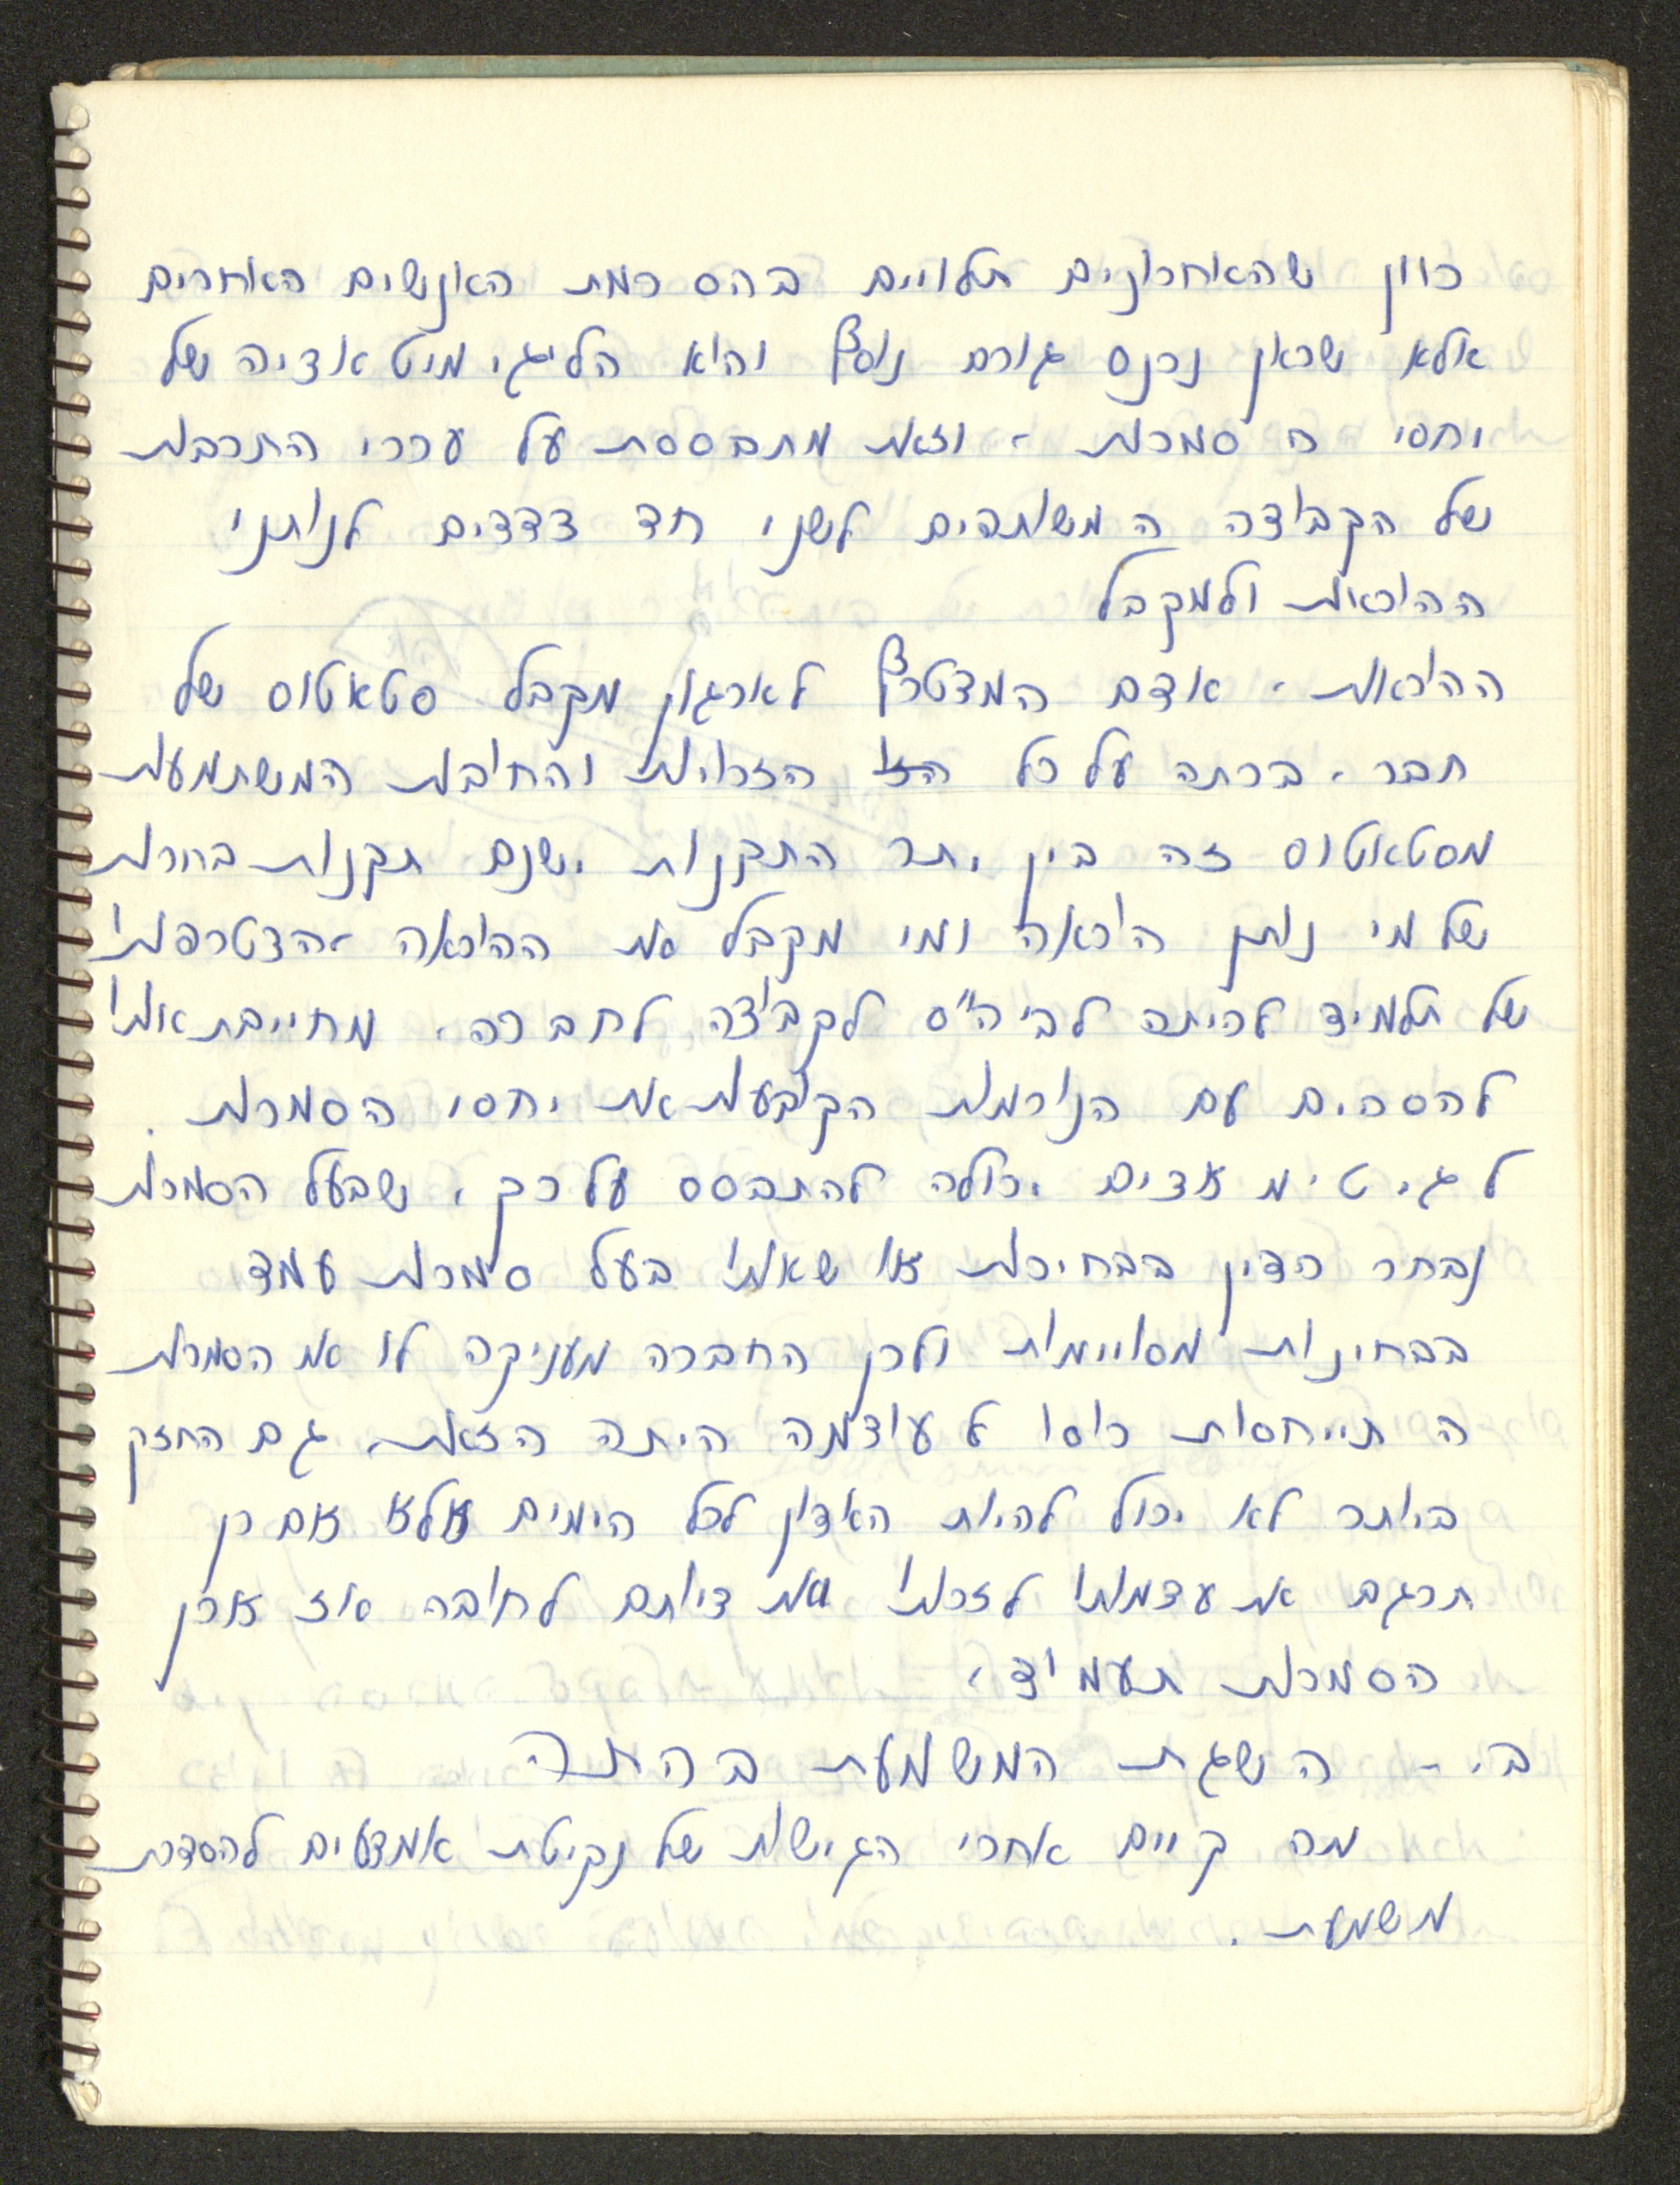 כוון שהאחרונים תלויים בהסכמת האנשים האחרים
אלא שכאן נכנס גורם נוסף והוא הליגימיטאציה של
יחסי ה סמכות, וזאת מתבססת על ערכי התרבות
של הקבוצה המשותפים לשני חד צדדים לנותני
ההוראות ולמקבל
ההוראות. אדם המצטרף לארגון מקבל סטאטוס של
חבר. בכתה על כל הזכויות והחובות המשתמעות
מסטאטוס זה בין יתר התקנות ישנם תקנות ברורות
של מי נותן הוראה ומי מקבל את ההוראה, הצטרפותו
של תלמיד לכיתה לביה"ס לקבוצה לחברה. מחייבת אותו
להסכים עם הנורמות הקובעות את יחסי הסמכות.
לגיטימאציה יכולה להתבסס על כך, שבעל הסמכות
נבחר כדין בבחירות או שאותו בעל סמכות עמד
בבחינות מסויימות ולכן החברה מעניקה לו את הסמכות
ה תייחסות רוסו לעוצמה היתה הזאת, גם החזק
ביותר לא יכול להיות האדון לכל הימים אלא אם כן
תרגם את עצמתו לזכותו ואת ציותם לחובה אז ארכן
הסמכות תעמיד,
ב. - השגת המשמעת בכתה
מה קיים אחרי הגישות של נקיטת אמצעים להסדרת
משמעת.